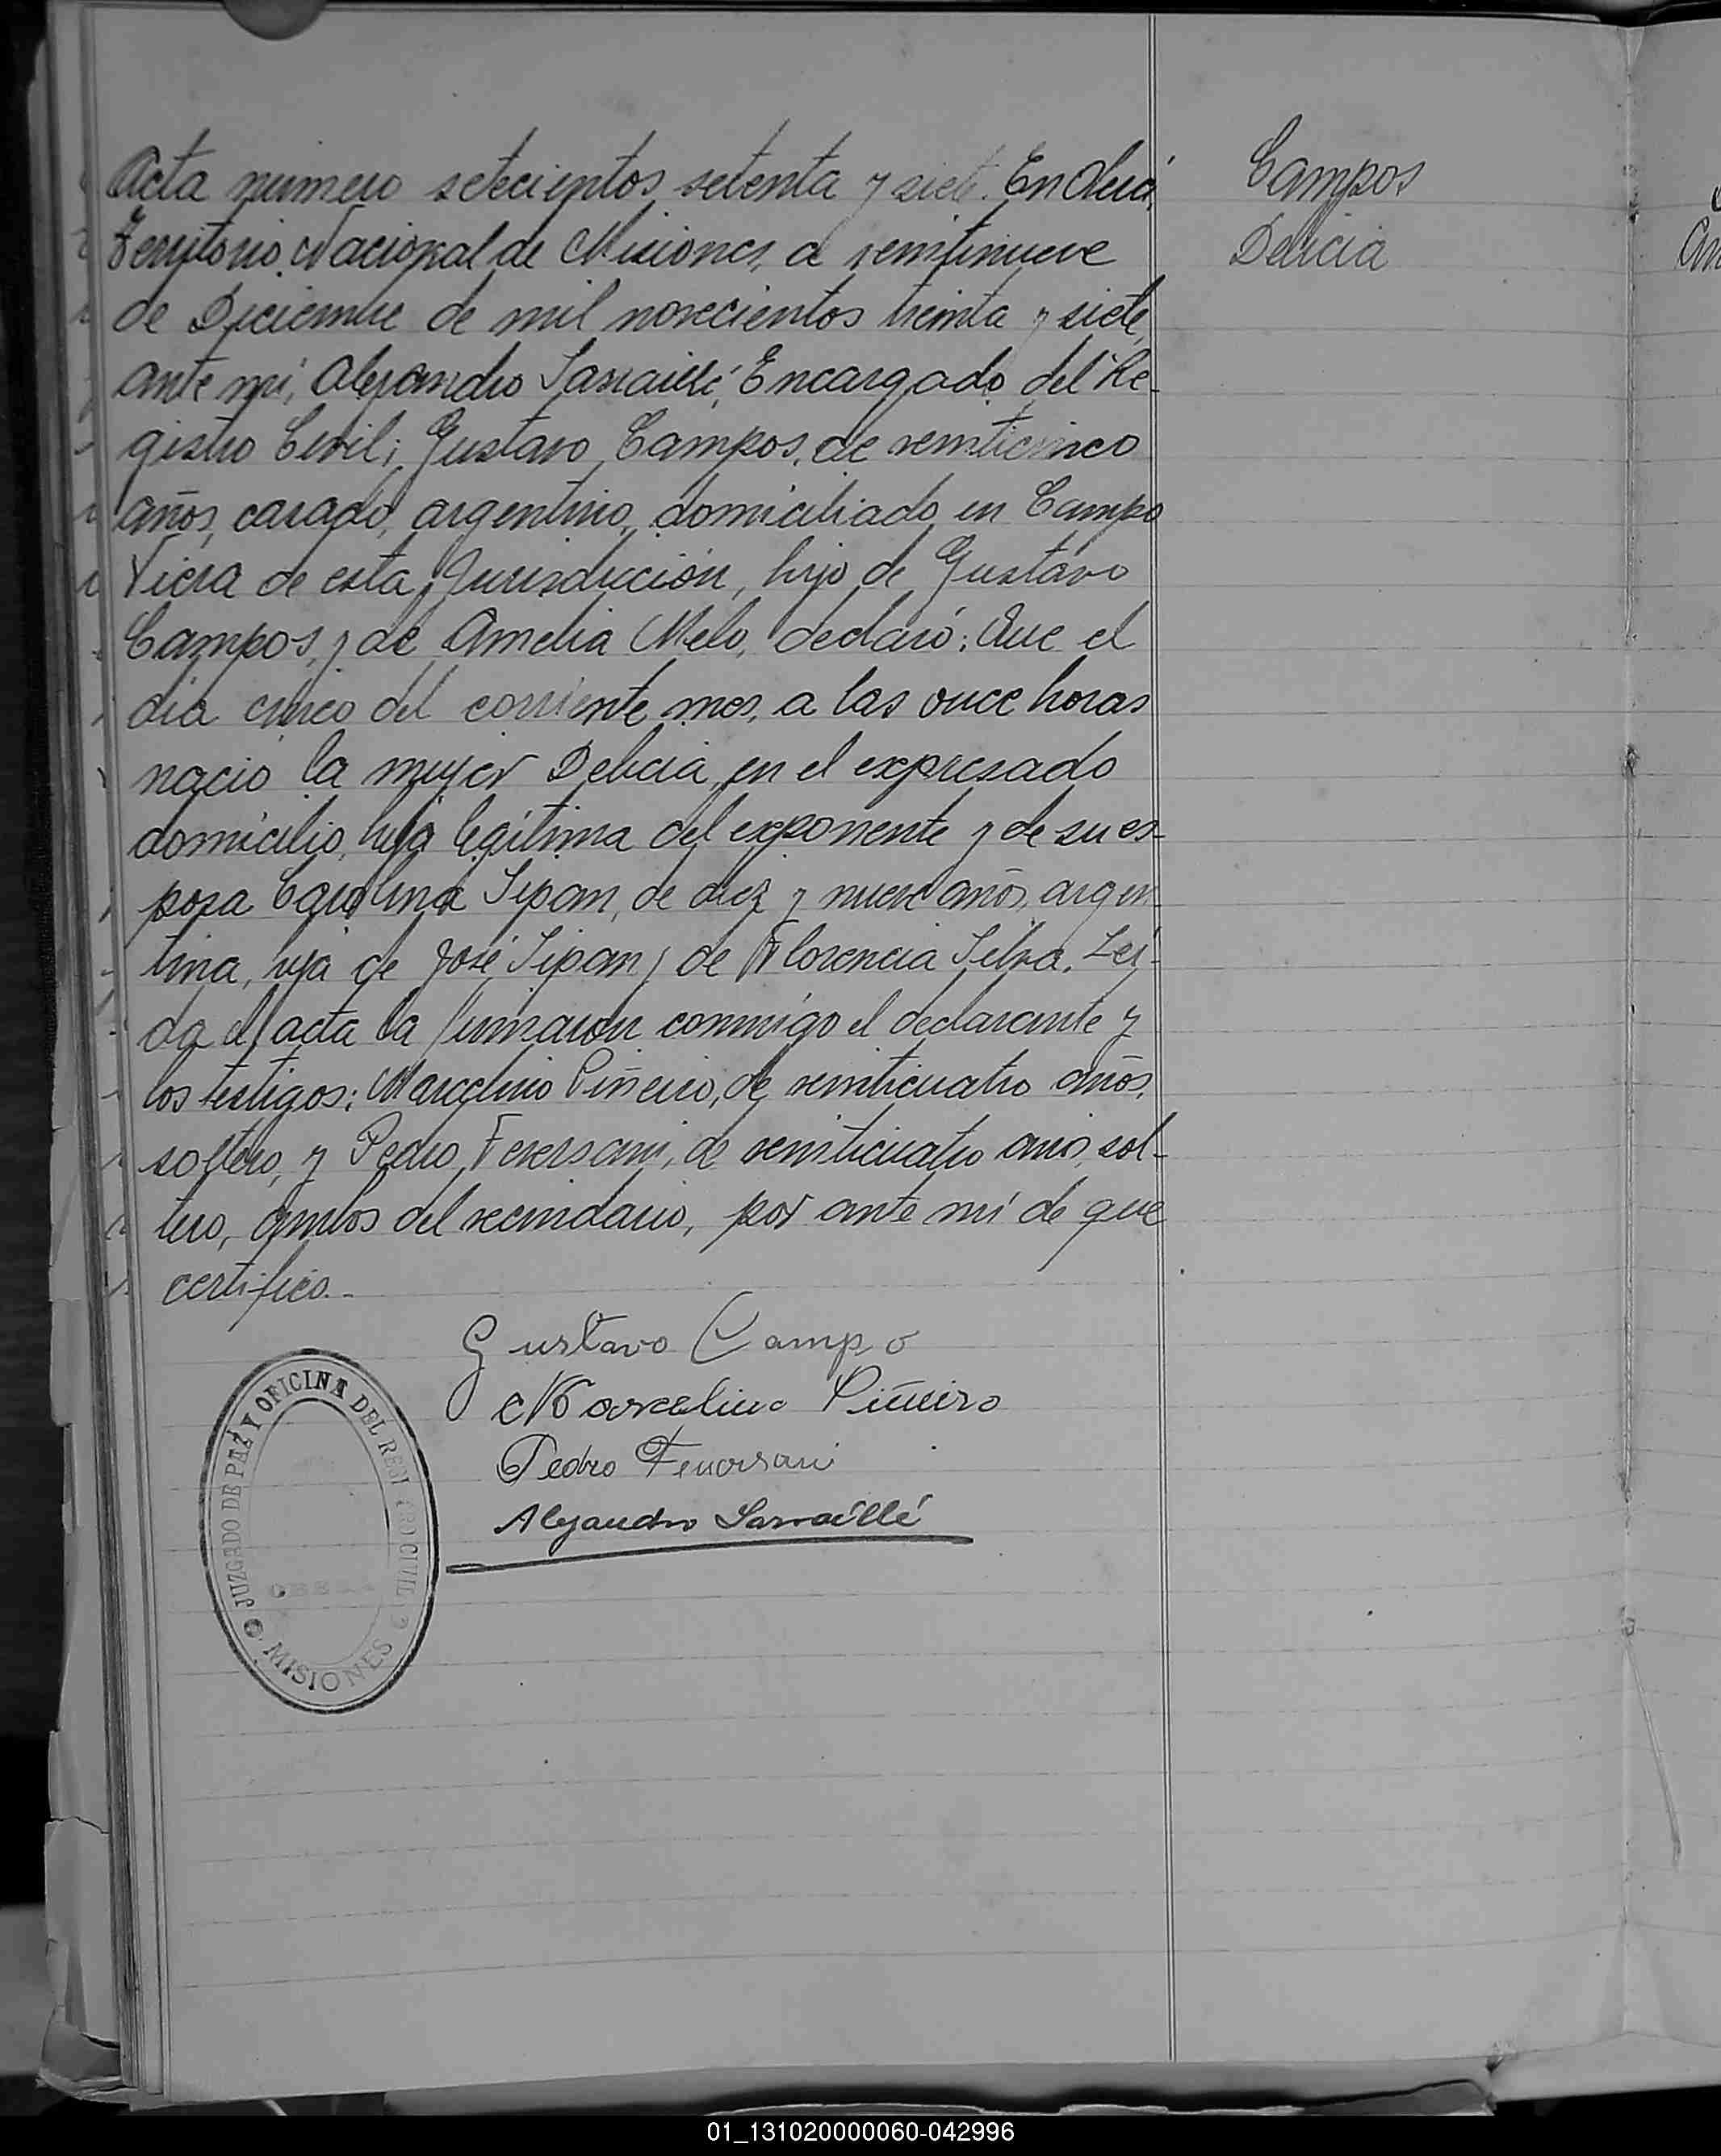 Acta número setecientos setenta y siete. En Oberá,
Territorio Nacional de Misiones, a veintinueve
de Diciembre de mil novecientos treinta y siete,
ante mí, Alejandro Sarraillé, Encargado del Re-
gistro Civil; Gustavo Campos, de veinticinco
años, casado, argentino, domiciliado en Campo
Viera de esta Jurisdicción, hijo de Gustavo
Campos, y de Amelia Melo, declaró: Que el
día cinco del corriente mes, a las once horas
nació la mujer Delicia, en el expresado
domicilio, hija legítima del exponente y de su es-
posa Carolina Sipan, de diez y nueve años, argen
tina, hija de José Sipan y de Florencia Silva. Leí-
da el acta la firmaron conmigo el declarante y
los testigos: Marcelino Piñeiro, de veinticuatro años,
soltero, y Pedro de veinticuatro años, sol-
tero, ambos del vecindario, por ante mí de que
certifico.-
Campos
Delicia
Gustavo Campo
Marcelino Piñeiro
Pedro
Alejandro Sarraillé
JUZGADO DE PAZ Y OFICINA DEL REGISTRO CIVIL
MISIONES
01_131020000060-042996